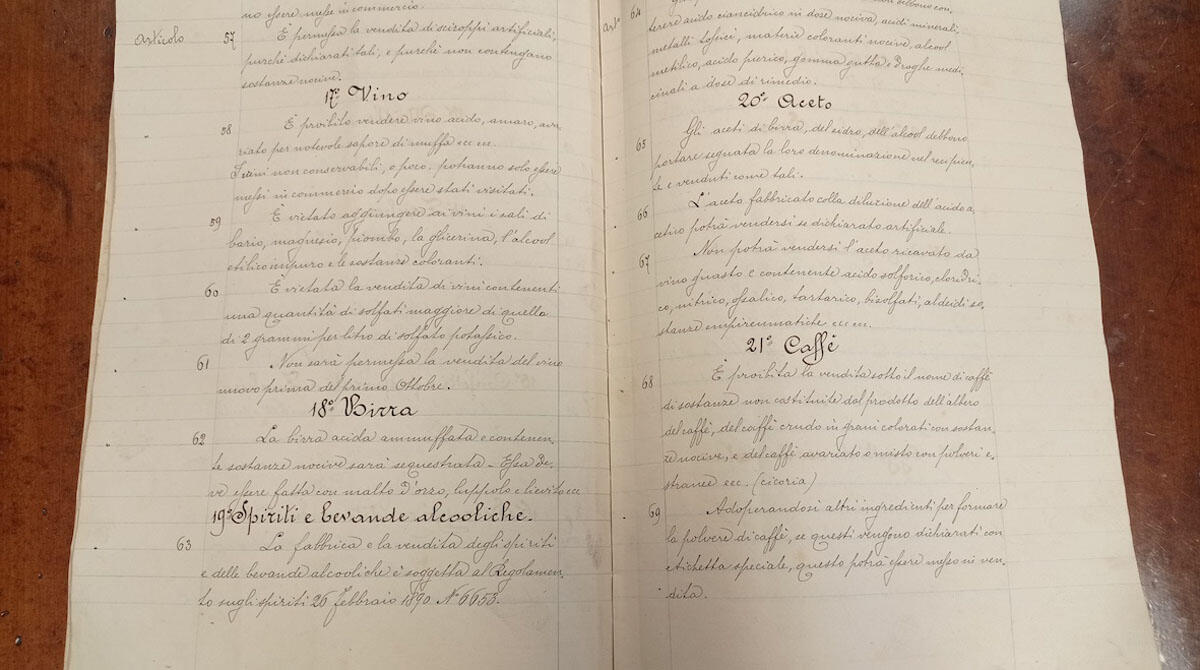 no essere messi in commercio.
Articolo 57 È permessa la vendita di sciroppi artificiali,
purchè dichiarati tali, e purchè non contengano
sostanze nocive.
17º Vino
58 È proibito vendere vino acido, amaro, ava-
riato per notevole sapore di muffa ecc ecc.
I vini non conservabili, o poco, potranno solo essere
messi in commercio dopo essere stati visitati.
59 È vietato aggiungere ai vini i sali di
bario, magnesio, piombo, la glicerina, l'alcool
etilico impuro e le sostanze coloranti.
60 È vietata la vendita di vini contenenti
una quantità di solfati maggiore di quella
di 2 grammi per litro di solfato potassico.
61 Non sarà permessa la vendita del vino
nuovo prima del primo Ottobre.
18º Birra
62 La birra acida ammuffata e contenen-
te sostanze nocive sarà sequestrata - Essa de-
ve essere fatta con malto d'orzo, luppolo e lievito ecc
19º Spiriti e bevande alcooliche.
63 La fabbrica e la vendita degli spiriti
e delle bevande alcooliche è soggetta al Regolamen-
to sugli spiriti 26 Febbraio 1890 Nº 6653.
Artº 64 debbono con-
tenere acido ciancidrico in dose nociva, acidi minerali,
metalli tossici, materie coloranti nocive, alcool
metilico, acido picrico, gomma gutta e droghe medi-
cinali a dose di rimedio.
20º Aceto
65 Gli aceti di birra, del sidro, dell'alcool debbono
portare segnata la loro denominazione nel recipien-
te e venduti come tali.
66 L'aceto fabbricato colla diluzione dell'acido a-
cetico potrà vendersi se dichiarato artificiale.
67 Non potrà vendersi l'aceto ricavato da
vino guasto e contenente acido solforico, cloridri-
co, nitrico, ossalico, tartarico, bisolfati, aldeidi so-
stanze empireumatiche ecc ecc.
21º Caffè
68 È proibita la vendita sotto il nome di caffè
di sostanze non costituite dal prodotto dell'albero
del caffè, del caffè crudo in grani colorati con sostan-
ze nocive, e del caffè avariato o misto con polveri e-
stranee ecc. (cicoria)
69 Adoperandosi altri ingredienti per formare
la polvere di caffè, se questi vengono dichiarati con
etichetta speciale, questo potrà essere messo in ven-
dita.